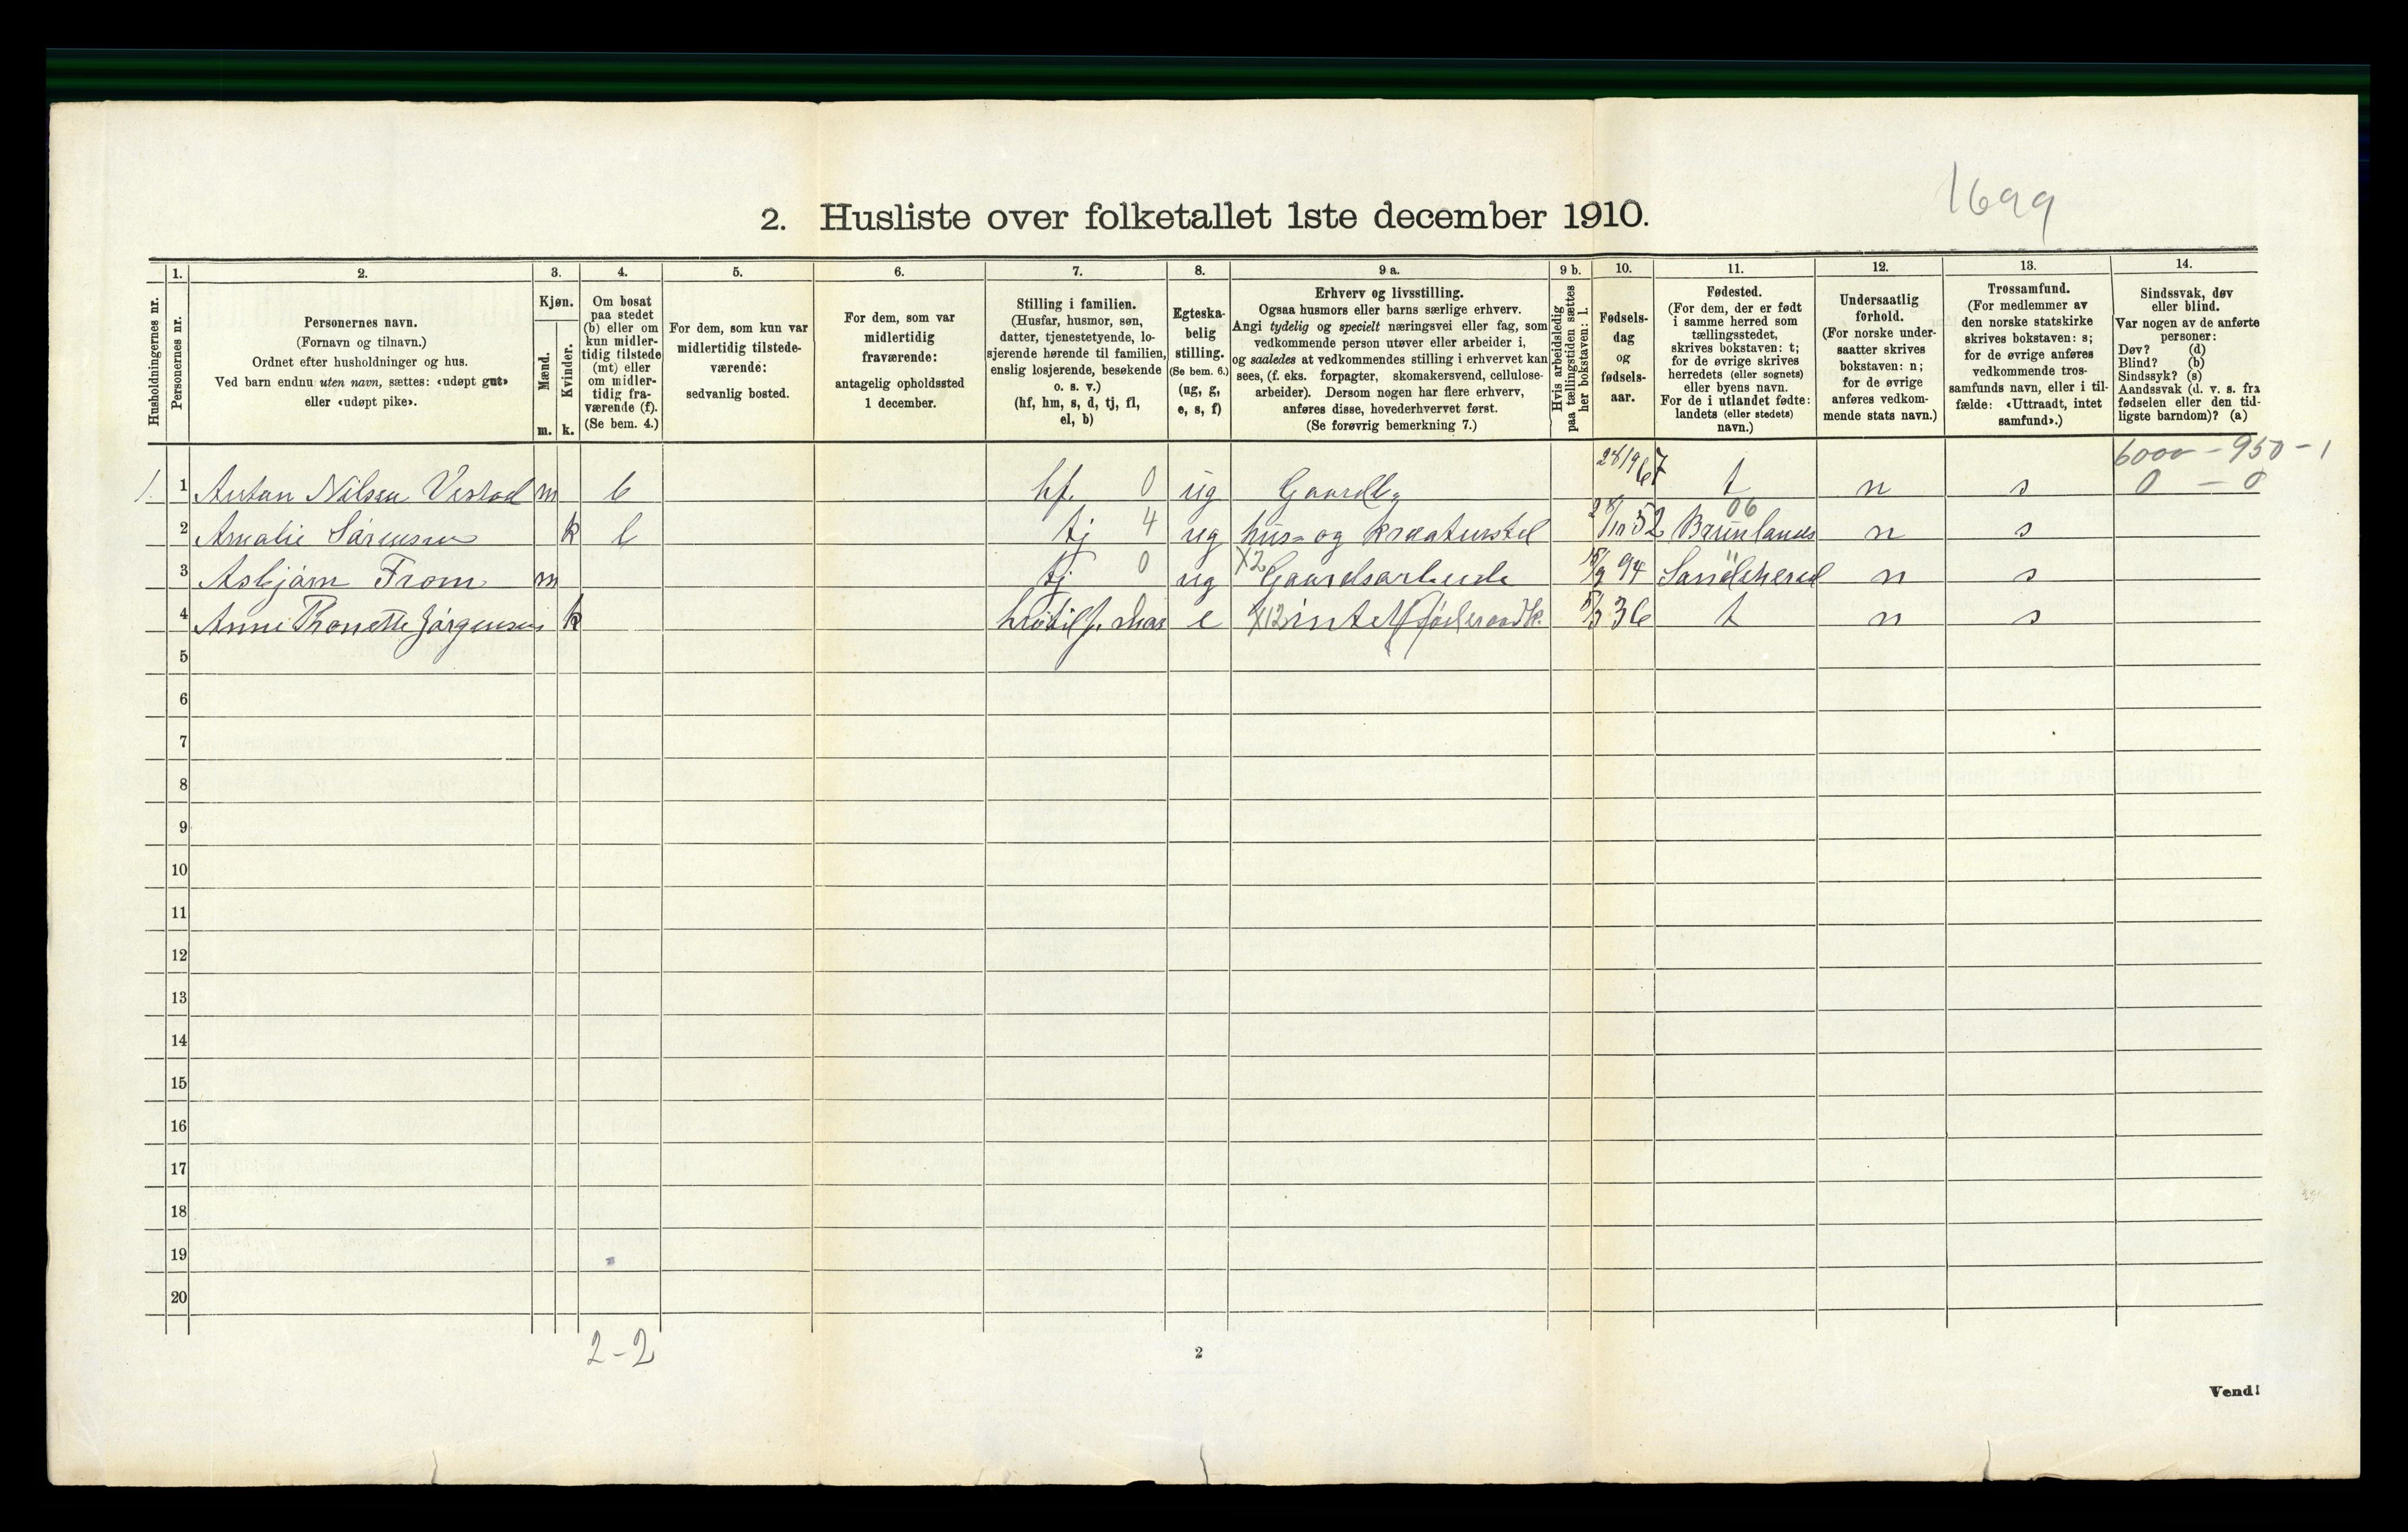 1699
2. Husliste over folketallet 1ste december 1910.
Husholdningernes nr.
1. Personernes nr.
2. Personernes navn.
(Fornavn og tilnavn.)
Ordnet efter husholdninger og hus.
Ved barn endnu uten navn, sættes: «udøpt gut»
eller «udøpt pike».
3. Kjøn.
Mænd. Kvinder.
m. k.
4. Om bosat
paa stedet
(b) eller om
kun midler-
tidig tilstede
(mt) eller
om midler-
tidig fra-
værende (f).
(Se bem. 4.)
5. For dem, som kun var
midlertidig tilstede-
værende:
sedvanlig bosted.
6. For dem, som var
midlertidig
fraværende:
antagelig opholdssted
1 december.
7. Stilling i familien.
(Husfar, husmor, søn,
datter, tjenestetyende, lo-
sjerende hørende til familien,
enslig losjerende, besøkende
o. s. v.)
(hf, hm, s, d, tj, fl,
el, b)
8. Egteska-
belig
stilling.
(Se bem. 6.)
(ug, g,
e, s, f)
9 a. Erhverv og livsstilling.
Ogsaa husmors eller barns særlige erhverv.
Angi tydelig og specielt næringsvei eller fag, som
vedkommende person utøver eller arbeider i,
og saaledes at vedkommendes stilling i erhvervet kan
sees, (f. eks. forpagter, skomakersvend, cellulose-
arbeider). Dersom nogen har flere erhverv,
anføres disse, hovederhvervet først.
(Se forøvrig bemerkning 7.)
9 b. Hvis arbeidsledig
paa tællingstiden sættes
her bokstaven: l.
10. Fødsels-
dag
og
fødsels-
aar.
11. Fødested.
(For dem, der er født
i samme herred som
tællingsstedet,
skrives bokstaven: t;
for de øvrige skrives
herredets (eller sognets)
eller byens navn.
For de i utlandet fødte:
landets (eller stedets)
navn.)
12. Undersaatlig
forhold.
(For norske under-
saatter skrives
bokstaven: n;
for de øvrige
anføres vedkom-
mende stats navn.)
13. Trossamfund.
(For medlemmer av
den norske statskirke
skrives bokstaven: s;
for de øvrige anføres
vedkommende tros-
samfunds navn, eller i til-
fælde: «Uttraadt, intet
samfund».)
14. Sindssvak, døv
eller blind.
Var nogen av de anførte
personer:
Døv? (d)
Blind? (b)
Sindssyk? (s)
Aandssvak (d. v. s. fra
fødselen eller den tid-
ligste barndom)? (a)
6000 - 950 - 1
1. 1 Anton Nilsen Vestad m b hf. 0 ug Gaardb. 28/9 67 t n s 0 - 0
2 Amalie Sørensen k b tj 4 ug hus- og kreaturstel 28/10 52 Brunlanes 06 n s
3 Asbjørn From m tj 0 ug X2 Gaardsarbeide 15/9 94 Sandeherred 11 n s
4 Anne Thonette Jørgensen k e X12 intet 5/3 36 t n s
5
6
7
8
9
10
11
12
13
14
15
16
17
18
19
20
2-2
2
Vend!